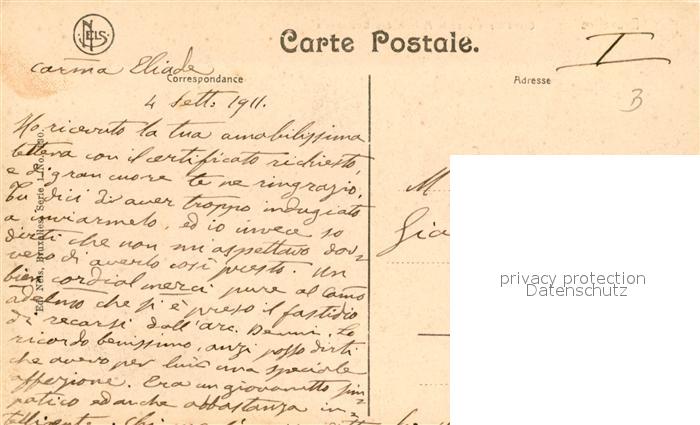 NELS
Carte Postale.
I
carma Eliade
Correspondance
Adresse
4 Sett: 1911.
3
Ho ricevuto la tua amabilissima
lettera con il certificato richiesto,
e di gran cuore te ne ringrazio.
Tu dici di aver troppo indugiato
a inviarmelo, ed io invece so
dirti che non mi aspettavo dav-
vero di averlo così presto. Un
bien cordial merci pure al
che si è preso il fastidio
di recarsi dall'arc. Lo
ricordo benissimo, anzi posso dirti
che avevo per lui una speciale
affezione. Era un giovanotto sim
patico ed anche abbastanza in-
telligente.
Ed. Nels, Bruxelles Serie 1, No.
M
Gia
privacy protection
Datenschutz